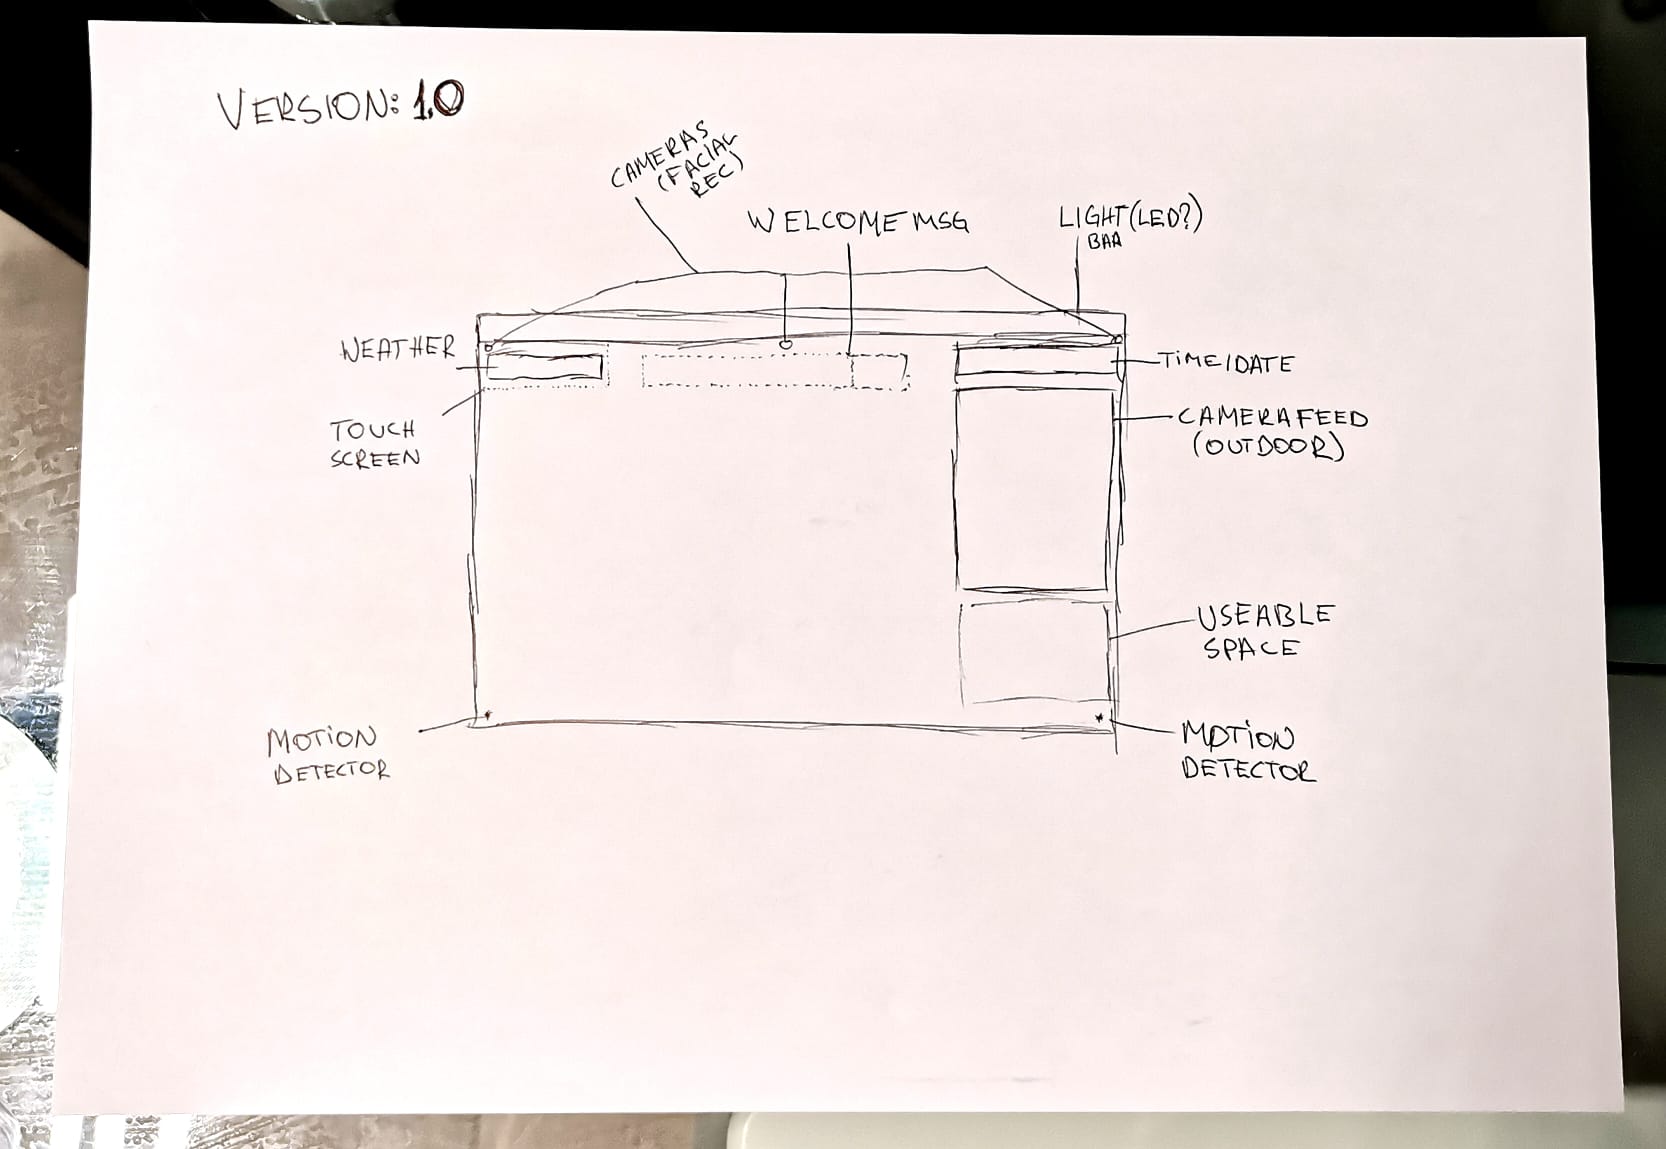 VERSION: 1.0
CAMERAS
(FACIAL
REC)
WELCOME MSG
LIGHT (LED?)
BAR
WEATHER
TIME/DATE
TOUCH
SCREEN
CAMERA FEED
(OUTDOOR)
USEABLE
SPACE
MOTION
DETECTOR
MOTION
DETECTOR